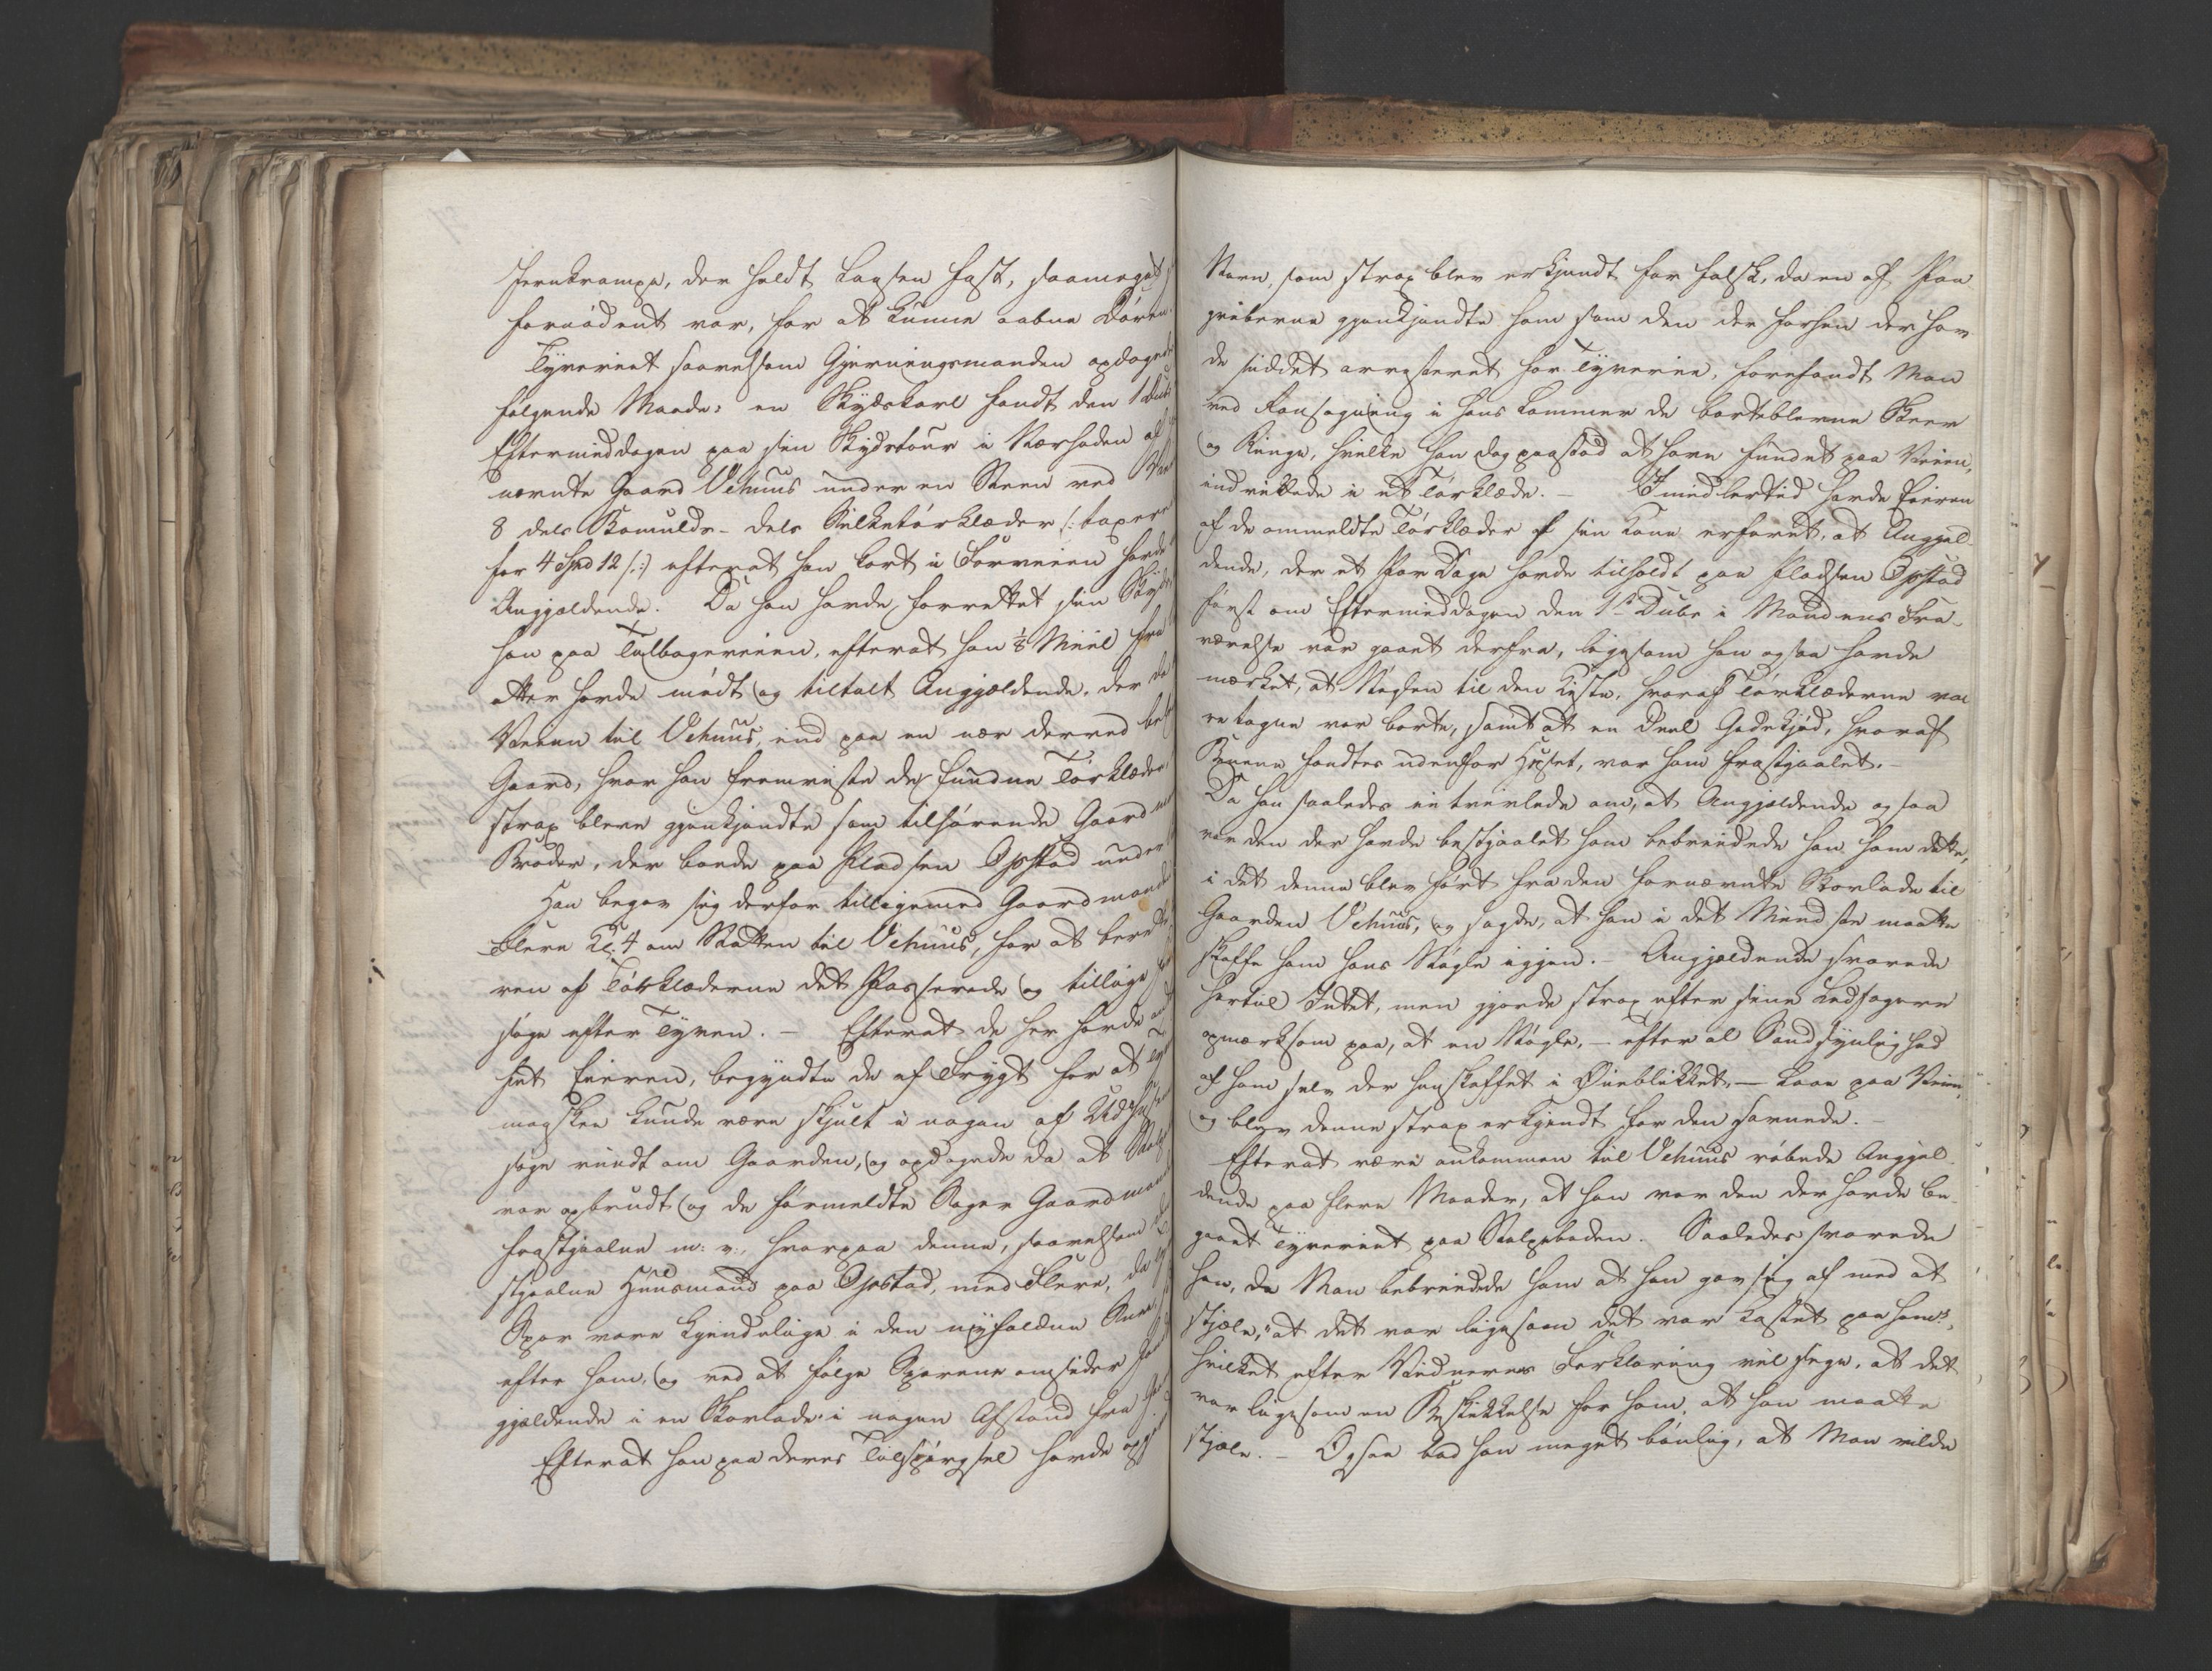 Jernkrampe, der holdt Laasen fast, saameget
fornødent var, for at kunne aabne Døren.
Tyveriet saavelsom Gjerningsmanden opdaged
følgende Maade: en Skydskarl fandt den 1 Dec
Eftermiddagen paa sin Skydstour i Nærheden af
nævnte Gaard Vehuus under en Steen ved
8 dels Bomulds- dels Silketørklæder /: taxere
for 4 Spd 12 /:/ efterat han kort i Forveien havde
Angjældende. Da han havde forrettet sin Skyds
han paa Tilbageveien, efterat han 1/8 Miil fra
atter havde mødt og tiltalt Angjældende, der da
Veien til Vehuus, ind paa en nær derved
Gaard, hvor han fremviste de fundne Tørklæder
strax bleve gjenkjendte som tilhørende Gaardm
Broder, der boede paa Pladsen Opstad under
Han begav sig derfor tilligemed Gaardmand
Flere Kl. 4 om Natten til Vehuus, for at berette
ren af Tørklæderne det Passerede og tillige
søge efter Tyven. – Efterat de her havde
het Eieren, begyndte de af Frygt for at Ty
maaskee kunde være skjult i nogen af Udhusene
søge rundt om Gaarden, og opdagede da at Stolp
var opbrudt og de førmeldte Sager Gaardmand
frastjaalne m: v:, hvorpaa denne, saavelsom
stjaalne Huusmand paa Opstad, med Flere, da
Spor vare kjendelige i den nysfaldne Snee,
efter ham, og ved at følge Sporene omsider
gjældende i en Skovlade i nogen Afstand fra
Efterat han paa deres Tilspørgsel havde opgi
Navn, som strax blev erkjendt for falsk, da en af Paa
griberne gjenkjendte ham som den der forhen der hav
de siddet arresteret for Tyverie, forefandt Man
ved Ransagning i hans Lommer de borteblevne Skeer
og Ringe, hvilke han dog paastod at have fundet paa Veien,
indviklede i et Tørklæde. – Imidlertid havde Eieren
af de ommeldte Tørklæder af sin Kone erfaret, at Angjæl-
dende, der et Par Dage havde tilholdt paa Pladsen Opstad
først om Eftermiddagen den 1ste Dcbr i Mandens Fra-
værelse var gaaet derfra, ligesom han ogsaa havde
mærket, at Nøglen til den Kiste, hvoraf Tørklæderne va
re tagne var borte, samt at en Deel Gedekjød, hvoraf
Benene fandtes udenfor Huset, var ham frastjaalet. –
Da han saaledes ei tvivlede om, at Angjældende ogsaa
var den der havde bestjaalet ham bebreidede han ham dette,
i det denne blev ført fra den fornævnte Skovlade til
Gaarden Vehuus, og sagde, at han i det Mindste maatte
skaffe ham hans Nøgle igjen. – Angjældende svarede
hertil Intet, men gjorde strax efter sine Ledsagere
opmærksom paa, at en Nøgle, – efter al Sandsynlighed
af ham selv der henskaffet i Øieblikket, – laae paa Veien,
og blev denne strax erkjendt for den savnede. –
Efterat være ankommen til Vehuus røbede Angjæl-
dende paa flere Maader, at han var den der havde be-
gaaet Tyveriet paa Stolpeboden. Saaledes svarede
han, da Man bebreidede ham at han gav sig af med at
stjæle, "at det var ligesom det var kastet paa ham",
hvilket efter Vidnernes Forklaring vil sige, at det
var ligesom en Beskikkelse for ham, at han maatte
stjæle. – Ogsaa bad han meget bønlig, at Man vilde